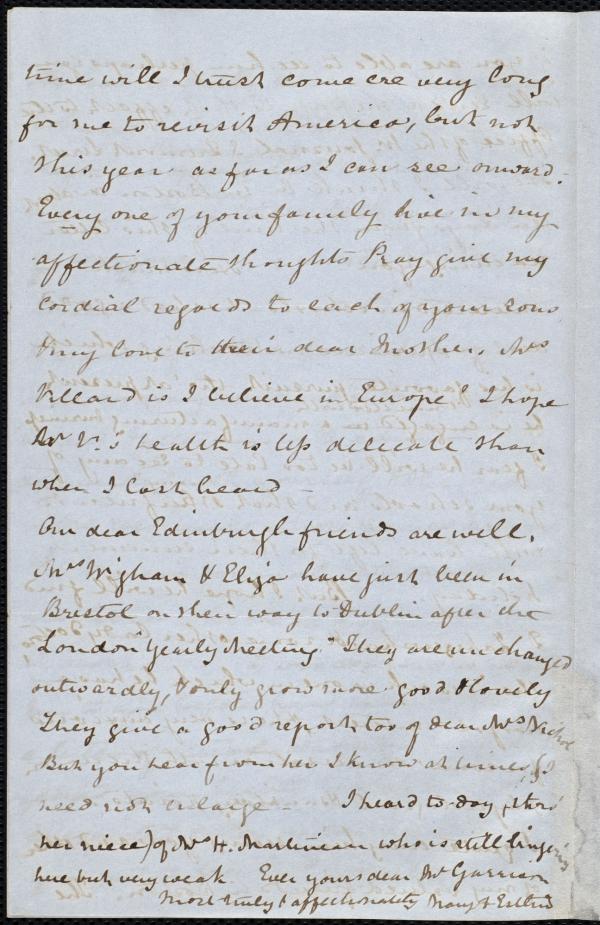 time will I trust come ere very long
for me to revisit America, but not
this year as far as I can see onward.
Every one of your family live in my
affectionate thoughts Pray give my
cordial regards to each of your sons
& my love to their dear Mother. Mrs
Villard is I believe in Europe? I hope
Mr V.'s health is less delicate than
when I last heard —
Our dear Edinburgh friends are well.
Mrs Wigham & Eliza have just been in
Bristol on their way to Dublin after the
London "Yearly Meeting." They are unchanged
outwardly, & only grow more good & lovely
They give a good report too of dear Mrs Nichol
But you hear from her I know at times, & I
need not enlarge — I heard to-day (thro'
her niece) of Mrs H. Martineau who is still lingering
here but very weak. Ever yours dear Mr Garrison
most truly & affectionately Mary A Estlin